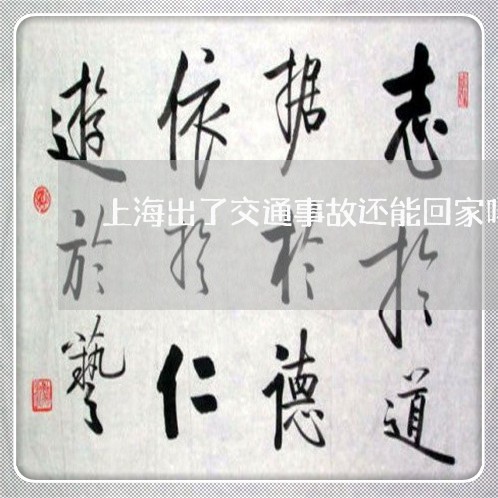 志於道
据於德
依於仁
遊於藝
上海出了交通事故还能回家